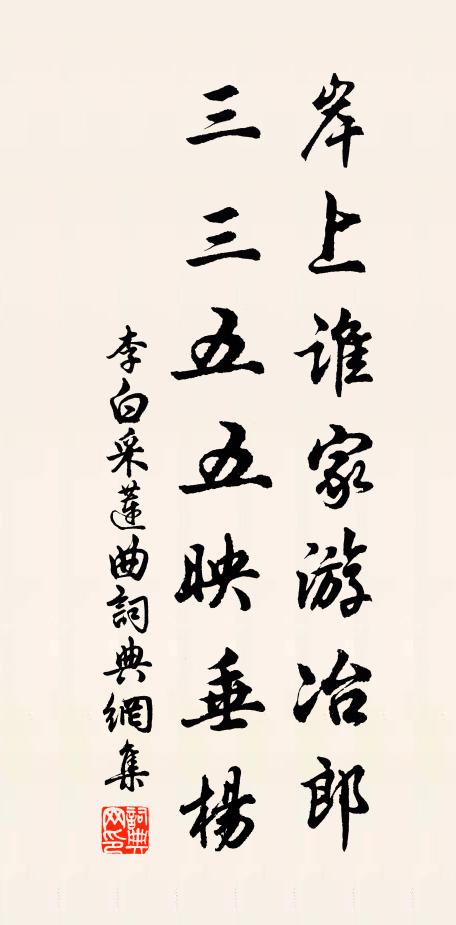 岸上谁家游冶郎
三三五五映垂楊
李白采蓮曲詞典網集
詞典
网印